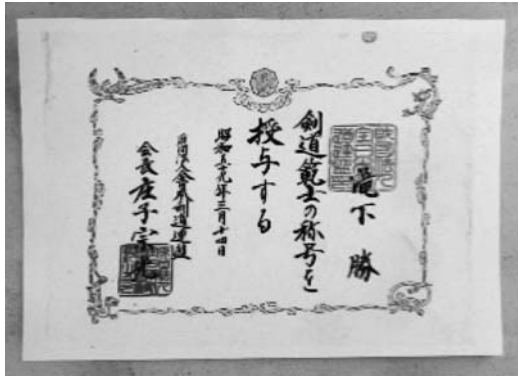 下 勝
剣道範士の称号を
授与する
昭和五十九年三月十四日
財団法人全日本剣道連盟
会長 庄子宗光